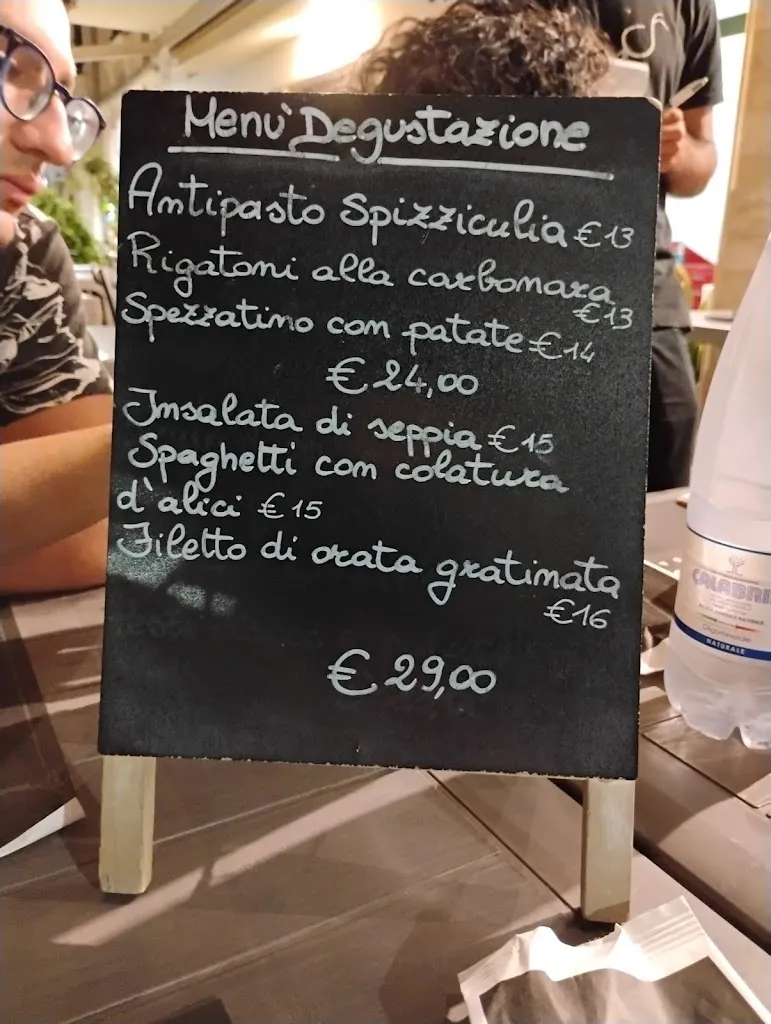 Menu' Degustazione
Antipasto Spizziculia €13
Rigatoni alla carbonara
€13
Spezzatino con patate €14
€24,00
Insalata di seppia €15
Spaghetti con colatura
d'alici €15
Filetto di orata gratinata
€16
€29,00
CALABRI
NATURALE